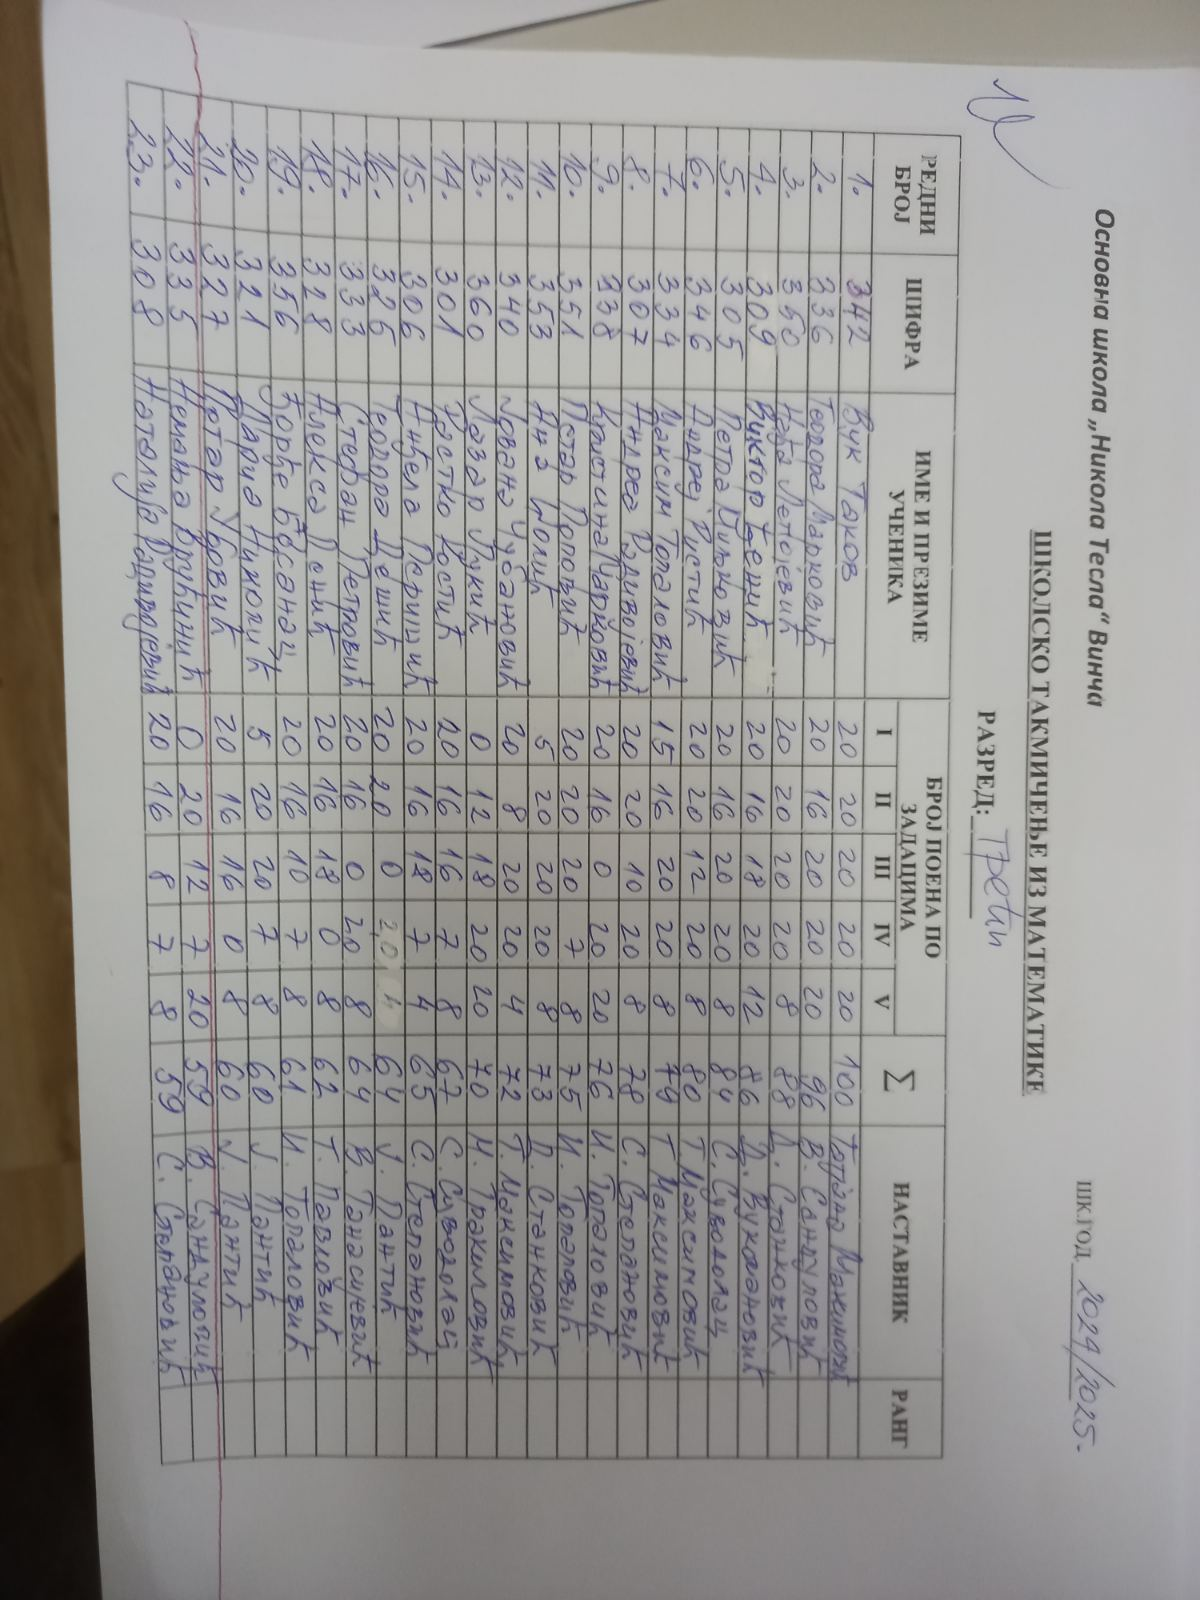 Основна школа „Никола Тесла“ Винча
ШКОЛСКО ТАКМИЧЕЊЕ ИЗ МАТЕМАТИКЕ
ШК.ГОД. 2024/2025.
РАЗРЕД: Трећи
РЕДНИ БРОЈ ШИФРА ИМЕ И ПРЕЗИМЕ УЧЕНИКА БРОЈ ПОЕНА ПО ЗАДАЦИМА I II III IV V Σ НАСТАВНИК РАНГ
1. 342 Вук Таков 20 20 20 20 20 100 Татјана Максимовић
2. 336 Теодора Марковић 20 16 20 20 20 96 В. Сандуловић
3. 350 Нађа Летојевић 20 20 20 20 8 88 Д. Станковић
4. 309 Виктор Ђенић 20 16 18 20 12 86 Д. Вукомановић
5. 305 Петра 20 16 20 20 8 84 С. Суводолац
6. 346 Андреј Ристић 20 20 12 20 8 80 Т. Максимовић
7. 334 Максим Топаловић 15 16 20 20 8 79 Т. Максимовић
8. 307 Андреа Радивојевић 20 20 10 20 8 78 С. Степановић
9. 338 Кристина Марковић 20 16 0 20 20 76 И. Топаловић
10. 351 Петар Поповић 20 20 20 7 8 75 И. Топаловић
11. 353 Ана 5 20 20 20 8 73 Д. Станковић
12. 340 Јована Чубановић 20 8 20 20 4 72 Т. Максимовић
13. 360 Лазар Лукић 0 12 18 20 20 70 Н. Тракиловић
14. 301 Растко Костић 20 16 16 7 8 67 С. Суводолац
15. 306 Анђела Перишић 20 16 18 7 4 65 С. Степановић
16. 325 Теодора Дешић 20 20 0 20 4 64 Ј. Пантић
17. 333 Стефан Петровић 20 16 0 20 8 64 В. Танасијевић
18. 328 Алекса Ленић 20 16 18 0 8 62 Т. Павловић
19. 356 Ђорђе 20 16 10 7 8 61 И. Топаловић
20. 321 Дарија Николић 5 20 20 7 8 60 Ј. Пантић
21. 327 Петар Убовић 20 16 16 0 8 60 Ј. Пантић
22. 335 Немања Врувинић 0 20 12 7 20 59 В. Сандуловић
23. 308 Наталија Радивојевић 20 16 8 7 8 59 С. Степановић